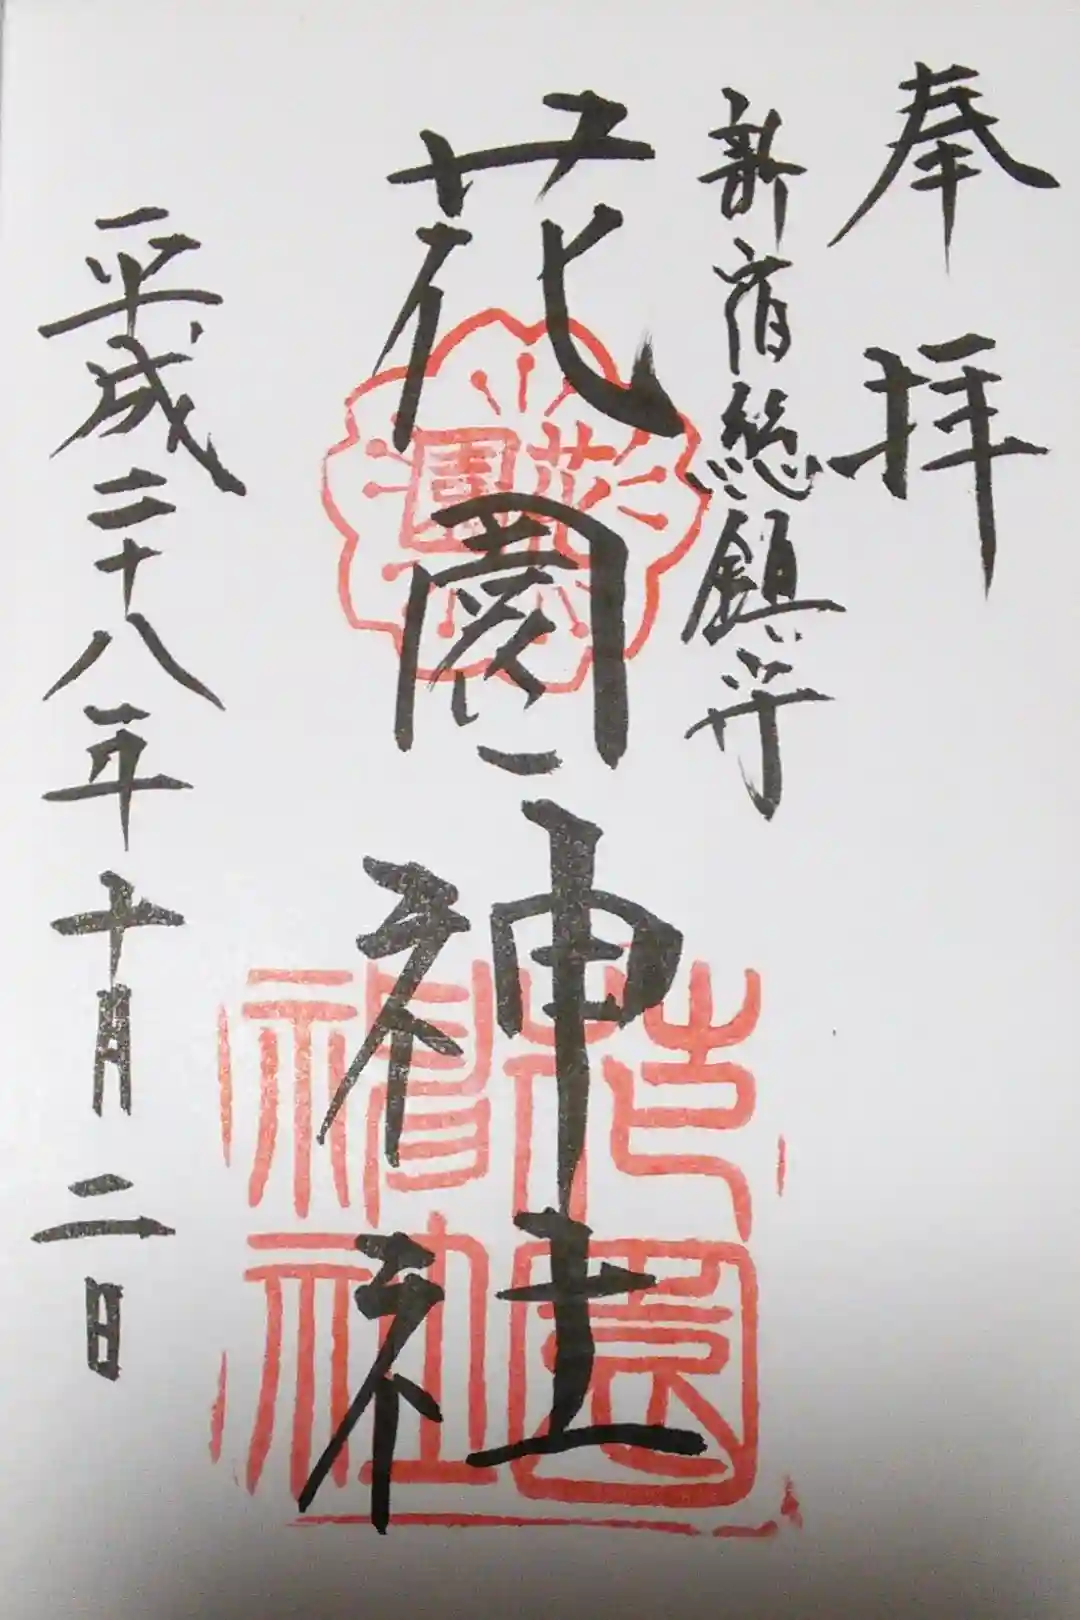 奉拝
新宿総鎮守
花園神社
花園
花園神社
平成二十八年十月二日